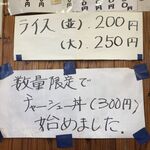 ライス(並) 200円
(大) 250円
数量限定で
チャーシュー丼(300円)
始めました.